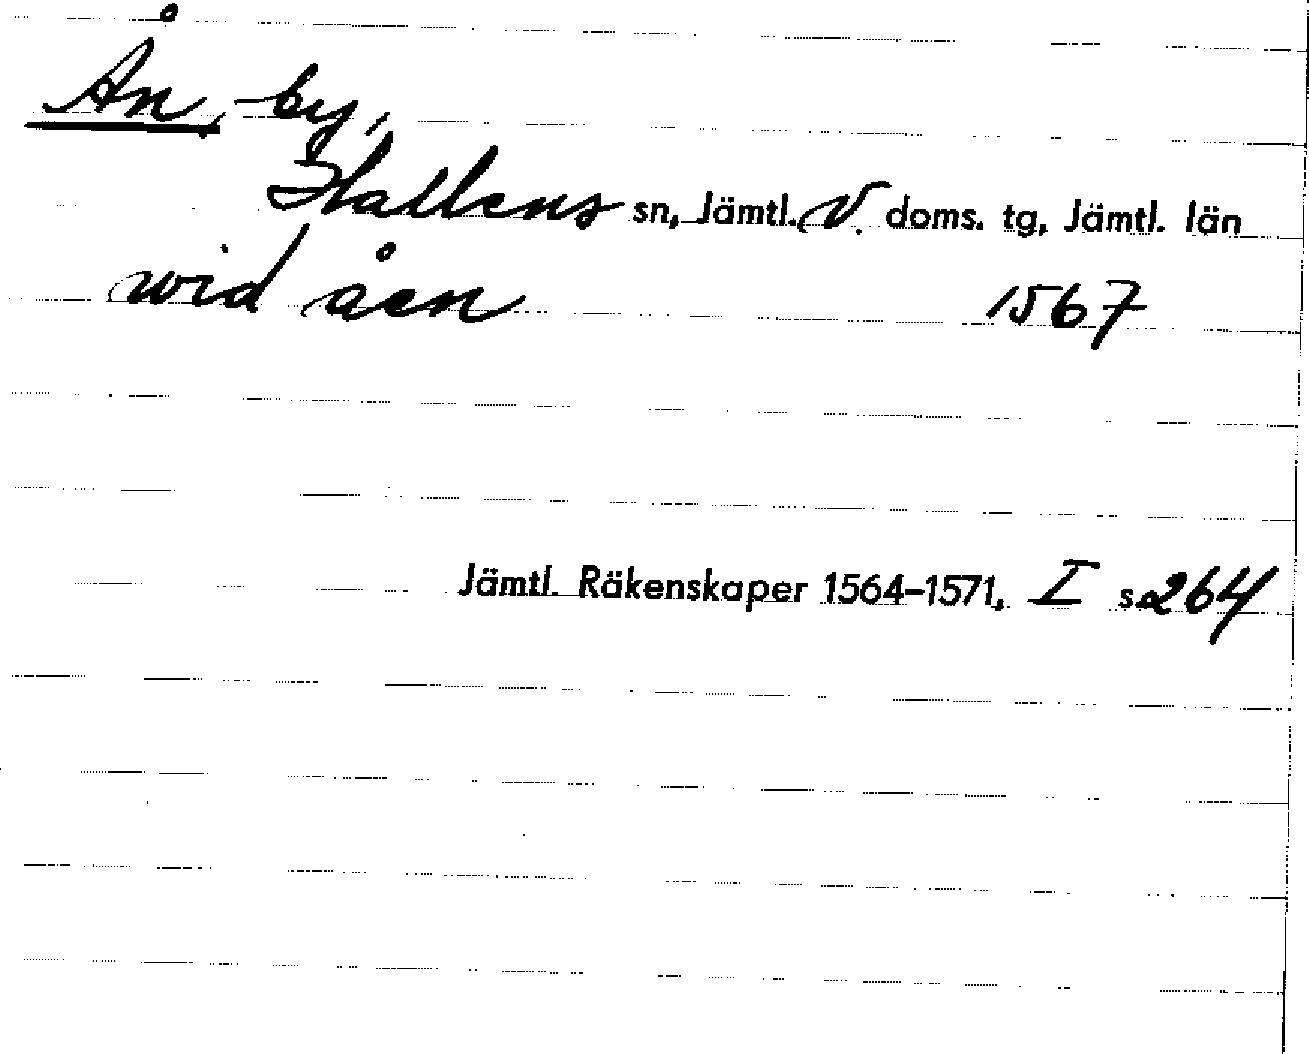 Ån, by,
Hallens sn, Jämtl. V. doms. tg, Jämtl. län
wid åen 1567
Jämtl. Räkenskaper 1564-1571, I s. 264